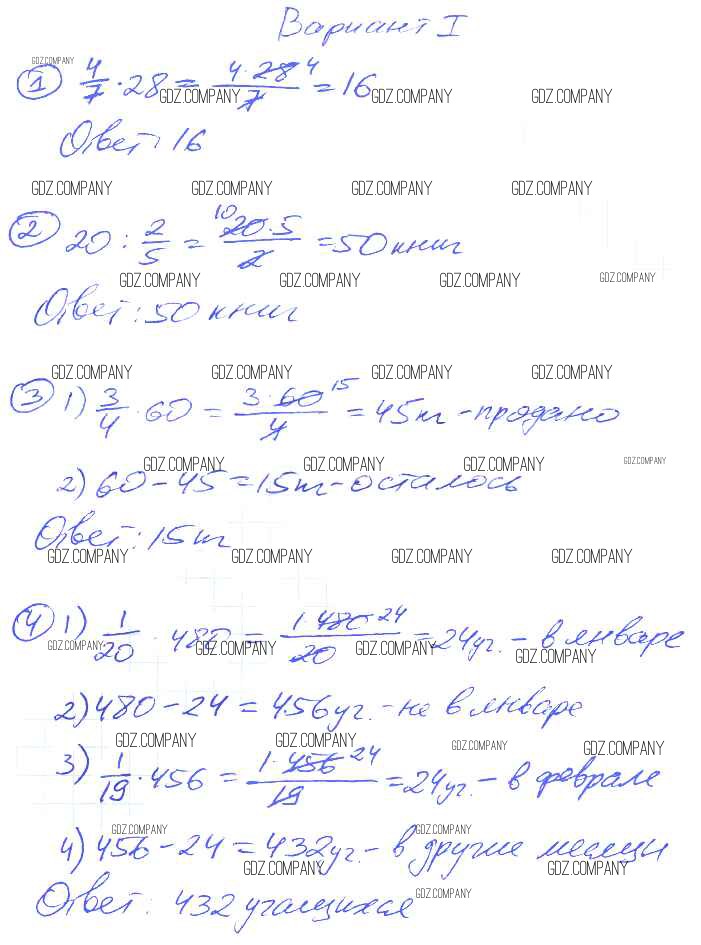 Вариант I
GDZ.COMPANY
① 4/7 · 28 = 4·28 4/7 = 16
GDZ.COMPANY GDZ.COMPANY GDZ.COMPANY
Ответ: 16
GDZ.COMPANY GDZ.COMPANY GDZ.COMPANY GDZ.COMPANY
② 20 : 2/5 = 10 20·5/2 = 50 книг
GDZ.COMPANY GDZ.COMPANY GDZ.COMPANY GDZ.COMPANY
Ответ: 50 книг
GDZ.COMPANY GDZ.COMPANY GDZ.COMPANY GDZ.COMPANY
③ 1) 3/4 · 60 = 3·60 15/4 = 45т - продано
GDZ.COMPANY GDZ.COMPANY GDZ.COMPANY GDZ.COMPANY
2) 60 - 45 = 15т - осталось
Ответ: 15т
GDZ.COMPANY GDZ.COMPANY GDZ.COMPANY GDZ.COMPANY
④ 1) 1/20 · 480 = 1·480 24/20 = 24уч. - в январе
GDZ.COMPANY GDZ.COMPANY GDZ.COMPANY GDZ.COMPANY
2) 480 - 24 = 456 уч. - не в январе
GDZ.COMPANY GDZ.COMPANY GDZ.COMPANY GDZ.COMPANY
3) 1/19 · 456 = 1·456 24/19 = 24уч. - в феврале
GDZ.COMPANY GDZ.COMPANY
4) 456 - 24 = 432уч. - в другие месяцы
GDZ.COMPANY GDZ.COMPANY
Ответ: 432 учащихся
GDZ.COMPANY